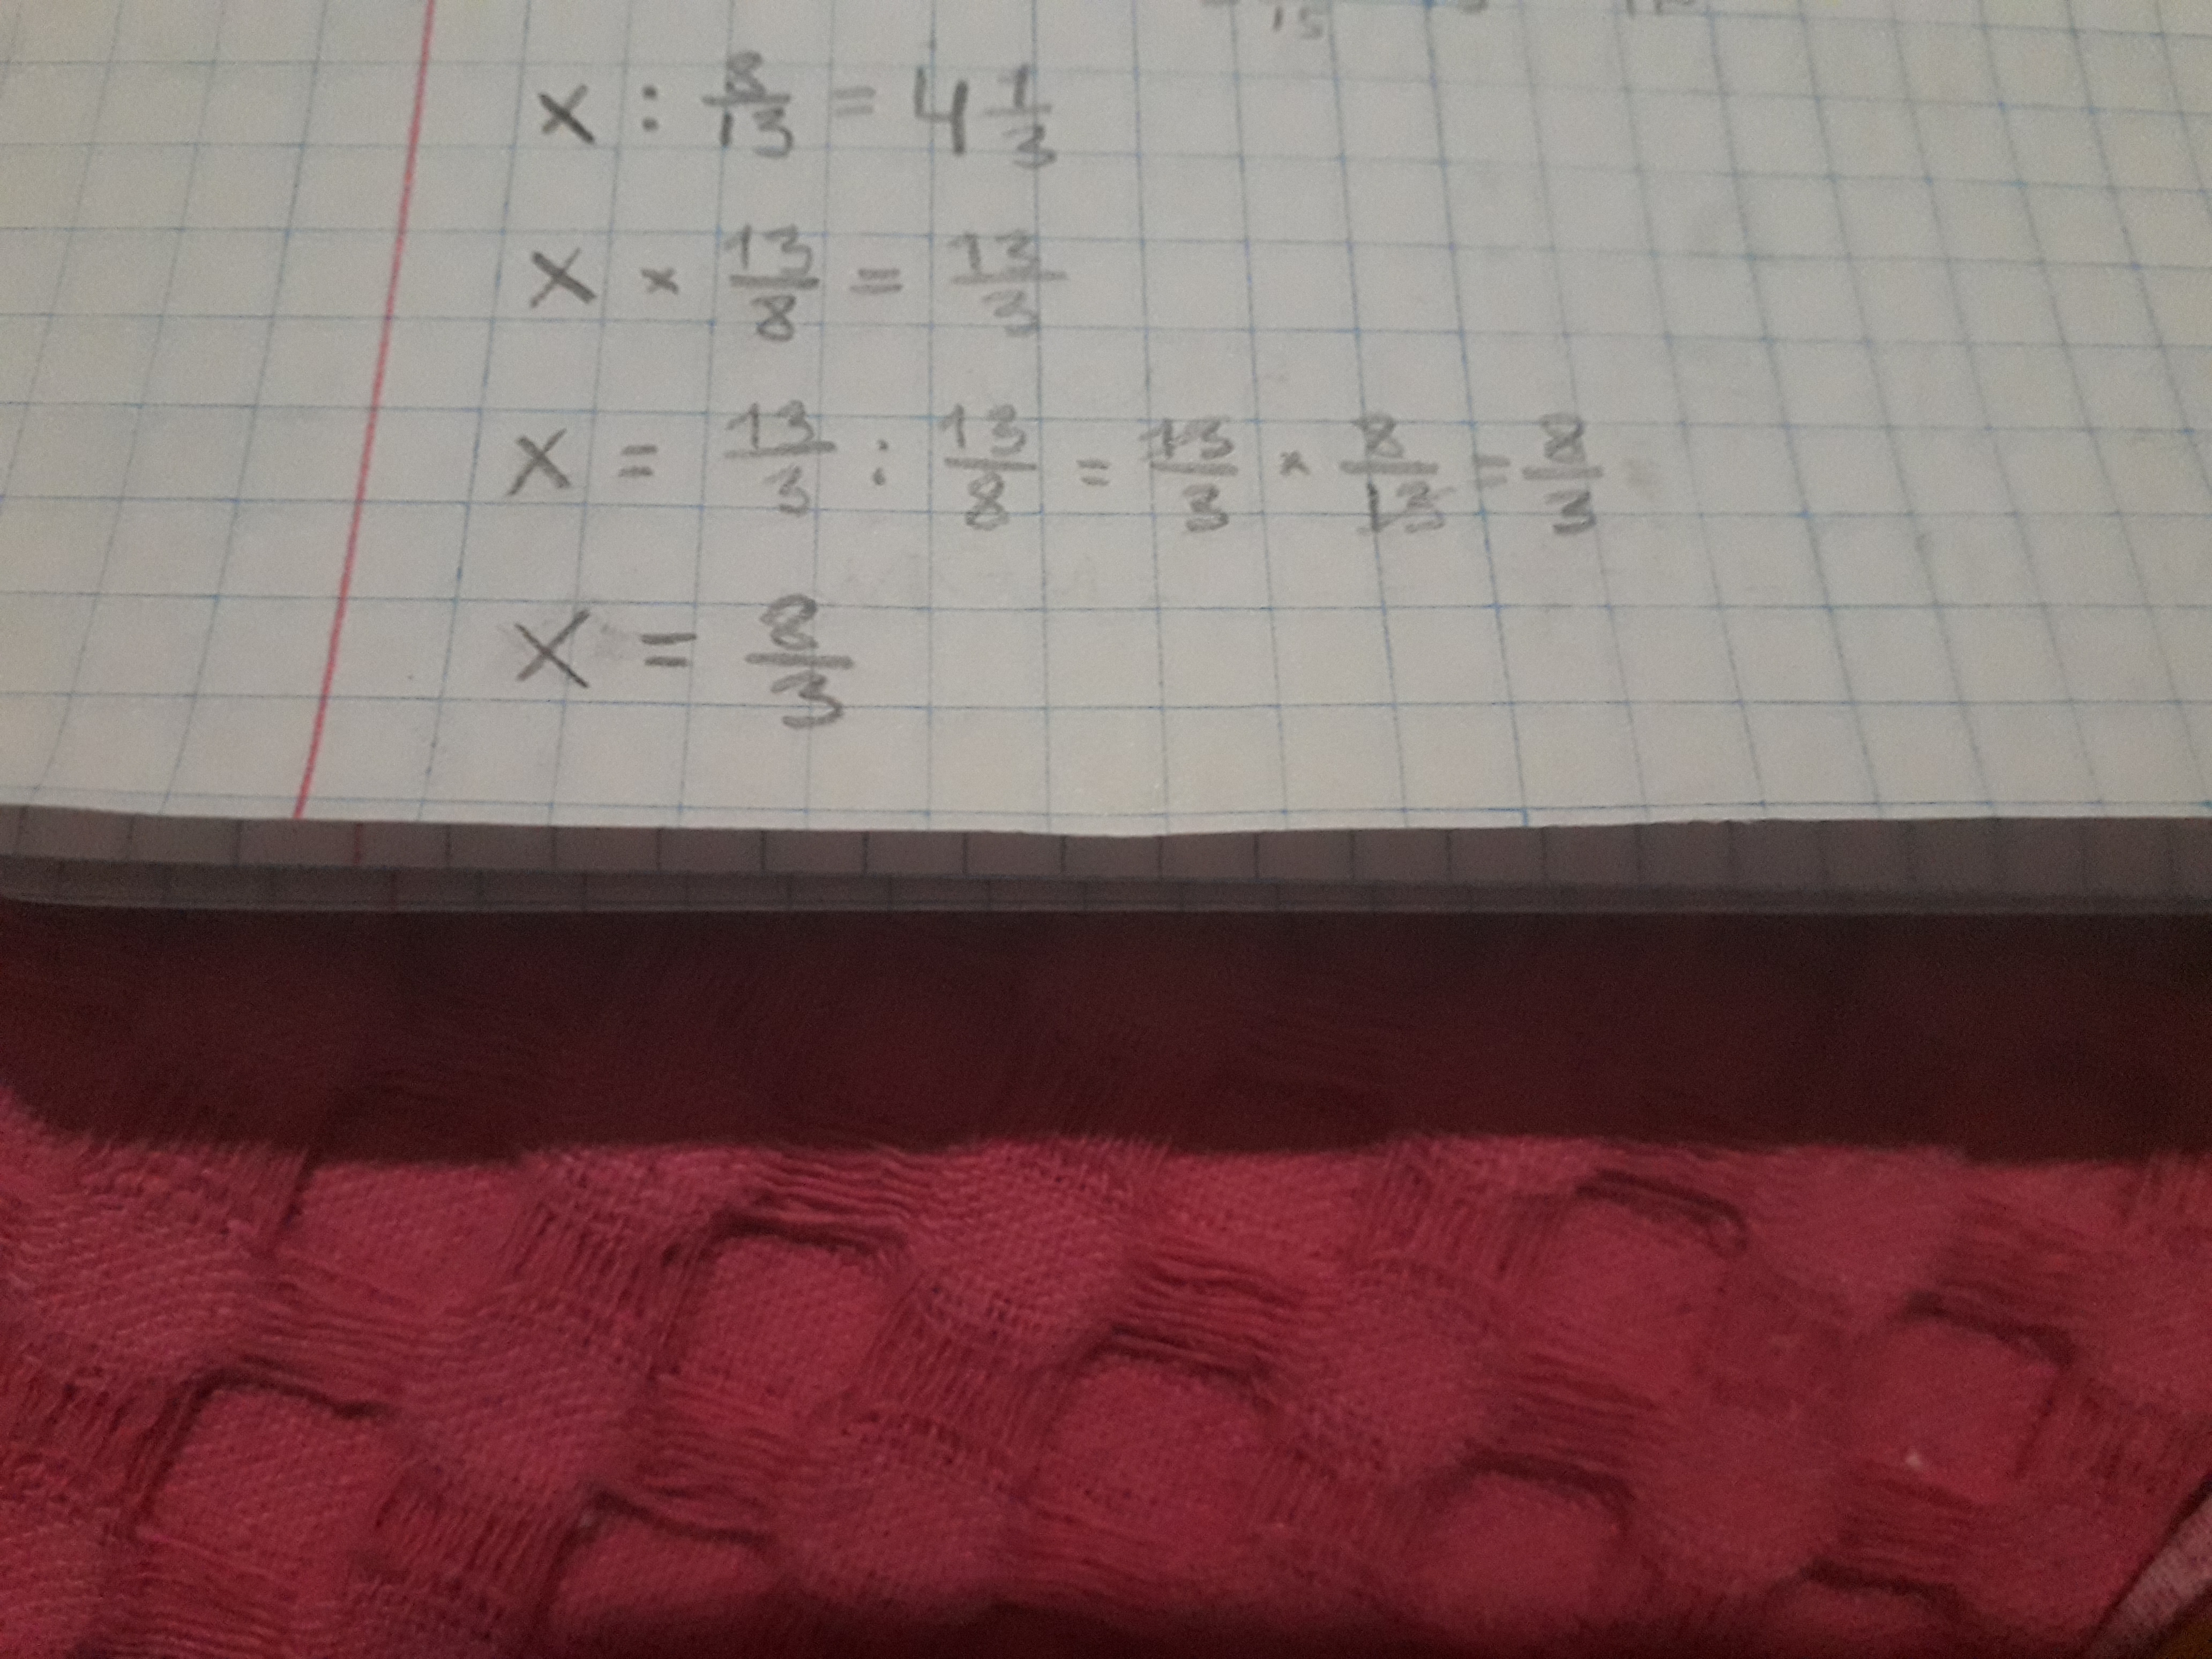 15
x : 8/13 = 4 1/3
x × 13/8 = 13/3
x = 13/3 : 13/8 = 13/3 × 8/13 = 8/3
x = 8/3